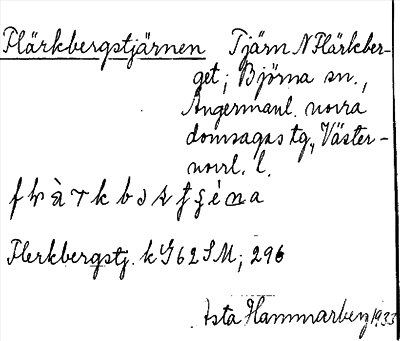 Flärkbergstjärnen Tjärn N Flärkber-
get; Björna sn.,
Ångermanl. norra
domsagas tg, Väster-
norrl. l.
Flerkbergstj. k G62SM; 296
Asta Hammarberg 1933